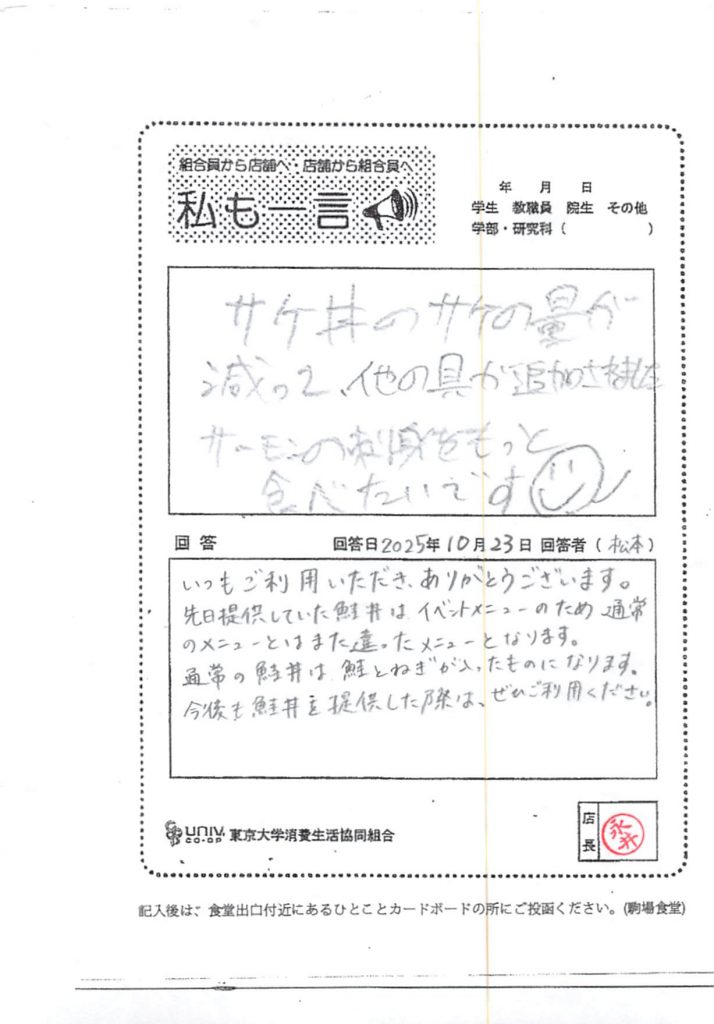 組合員から店舗へ・店舗から組合員へ
私も一言
年 月 日
学生 教職員 院生 その他
学部・研究科 ( )
サケ丼のサケの量が
減って、他の具が追加されました
サーモンの刺身をもっと
食べたいです
回答 回答日2025年10月23日 回答者 (松本)
いつもご利用いただき、ありがとうございます。
先日提供していた鮭丼は、イベントメニューのため通常
のメニューとはまた違ったメニューとなります。
通常の鮭丼は、鮭とねぎが入ったものになります。
今後も鮭丼を提供した際は、ぜひご利用ください。
UNIV. CO-OP 東京大学消費生活協同組合
店長 永井
記入後は、食堂出口付近にあるひとことカードボードの所にご投函ください。(駒場食堂)